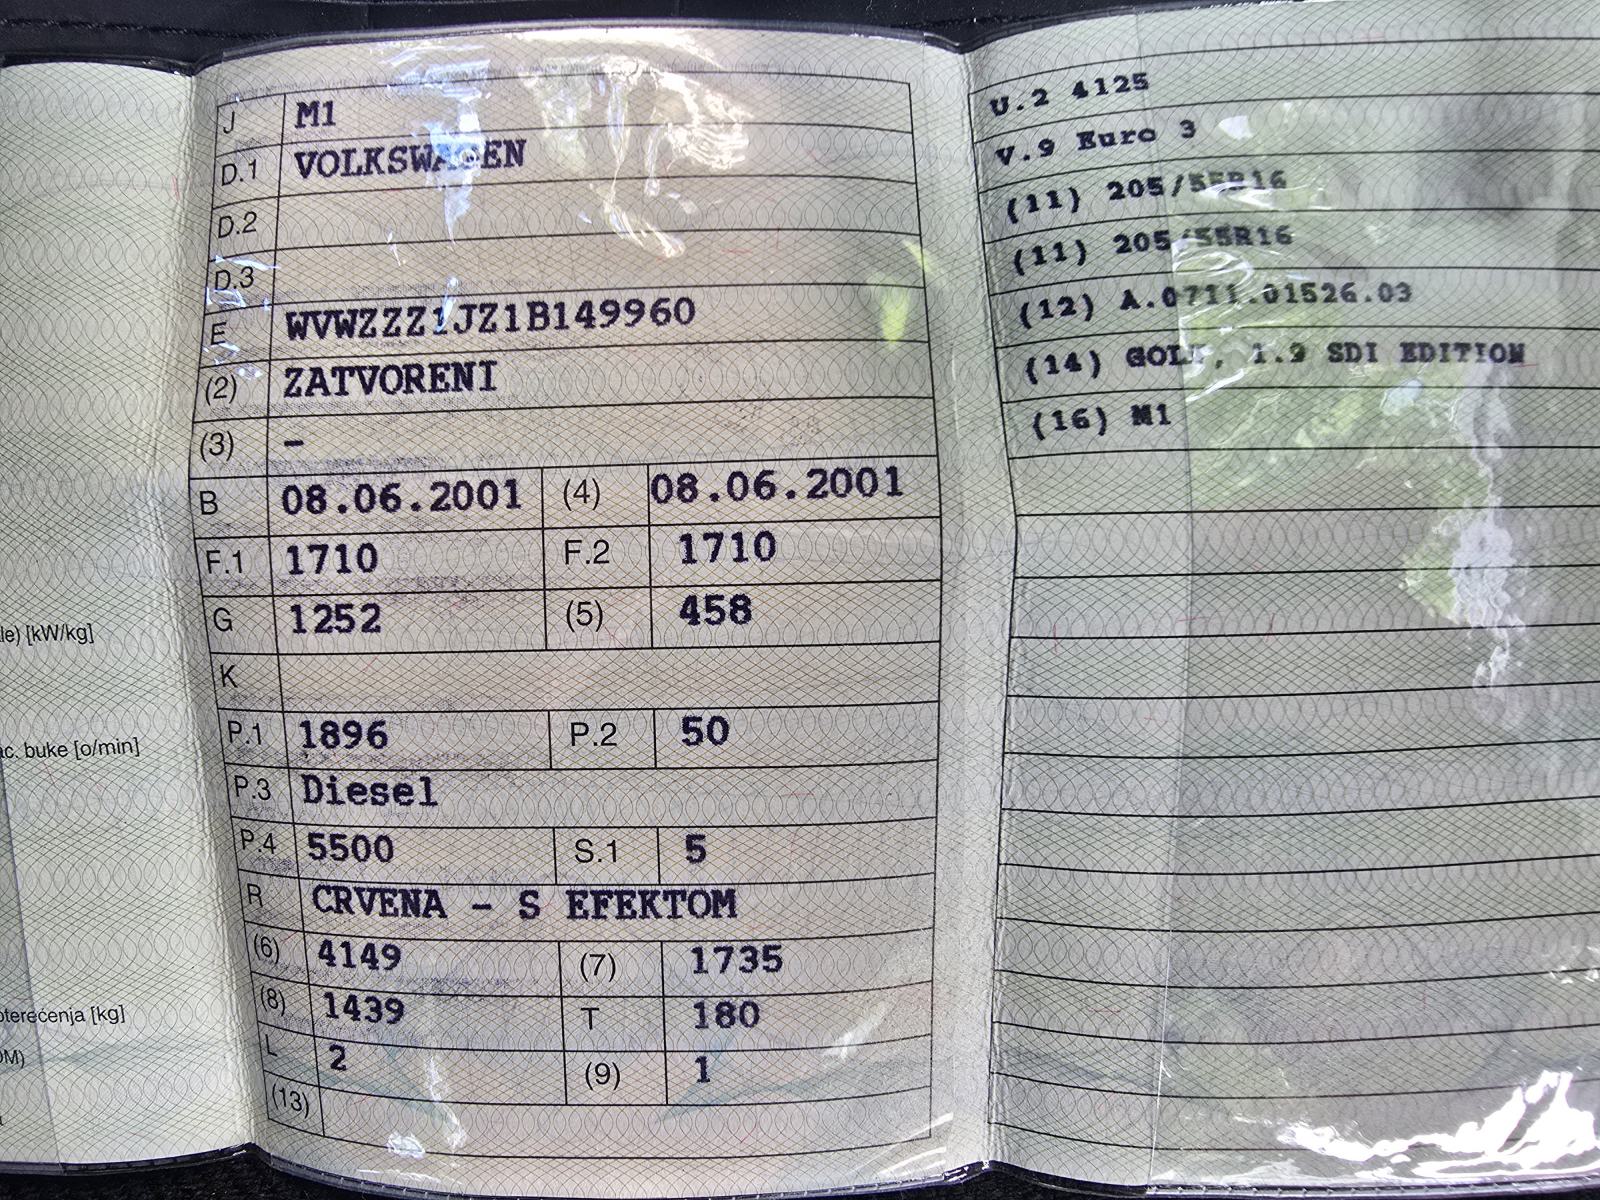 J M1
D.1 VOLKSWAGEN
D.2
D.3
E WVWZZZ1JZ1B149960
(2) ZATVORENI
(3) –
B 08.06.2001 (4) 08.06.2001
F.1 1710 F.2 1710
G 1252 (5) 458
K
P.1 1896 P.2 50
P.3 Diesel
P.4 5500 S.1 5
R CRVENA – S EFEKTOM
(6) 4149 (7) 1735
(8) 1439 T 180
L 2 (9) 1
(13)
U.2 4125
V.9 Euro 3
(11) 205/55R16
(11) 205/55R16
(12) A.0711.01526.03
(14) GOLF, 1.9 SDI EDITION
(16) M1
le) [kW/kg]
ac. buke [o/min]
oterećenja [kg]
OM)